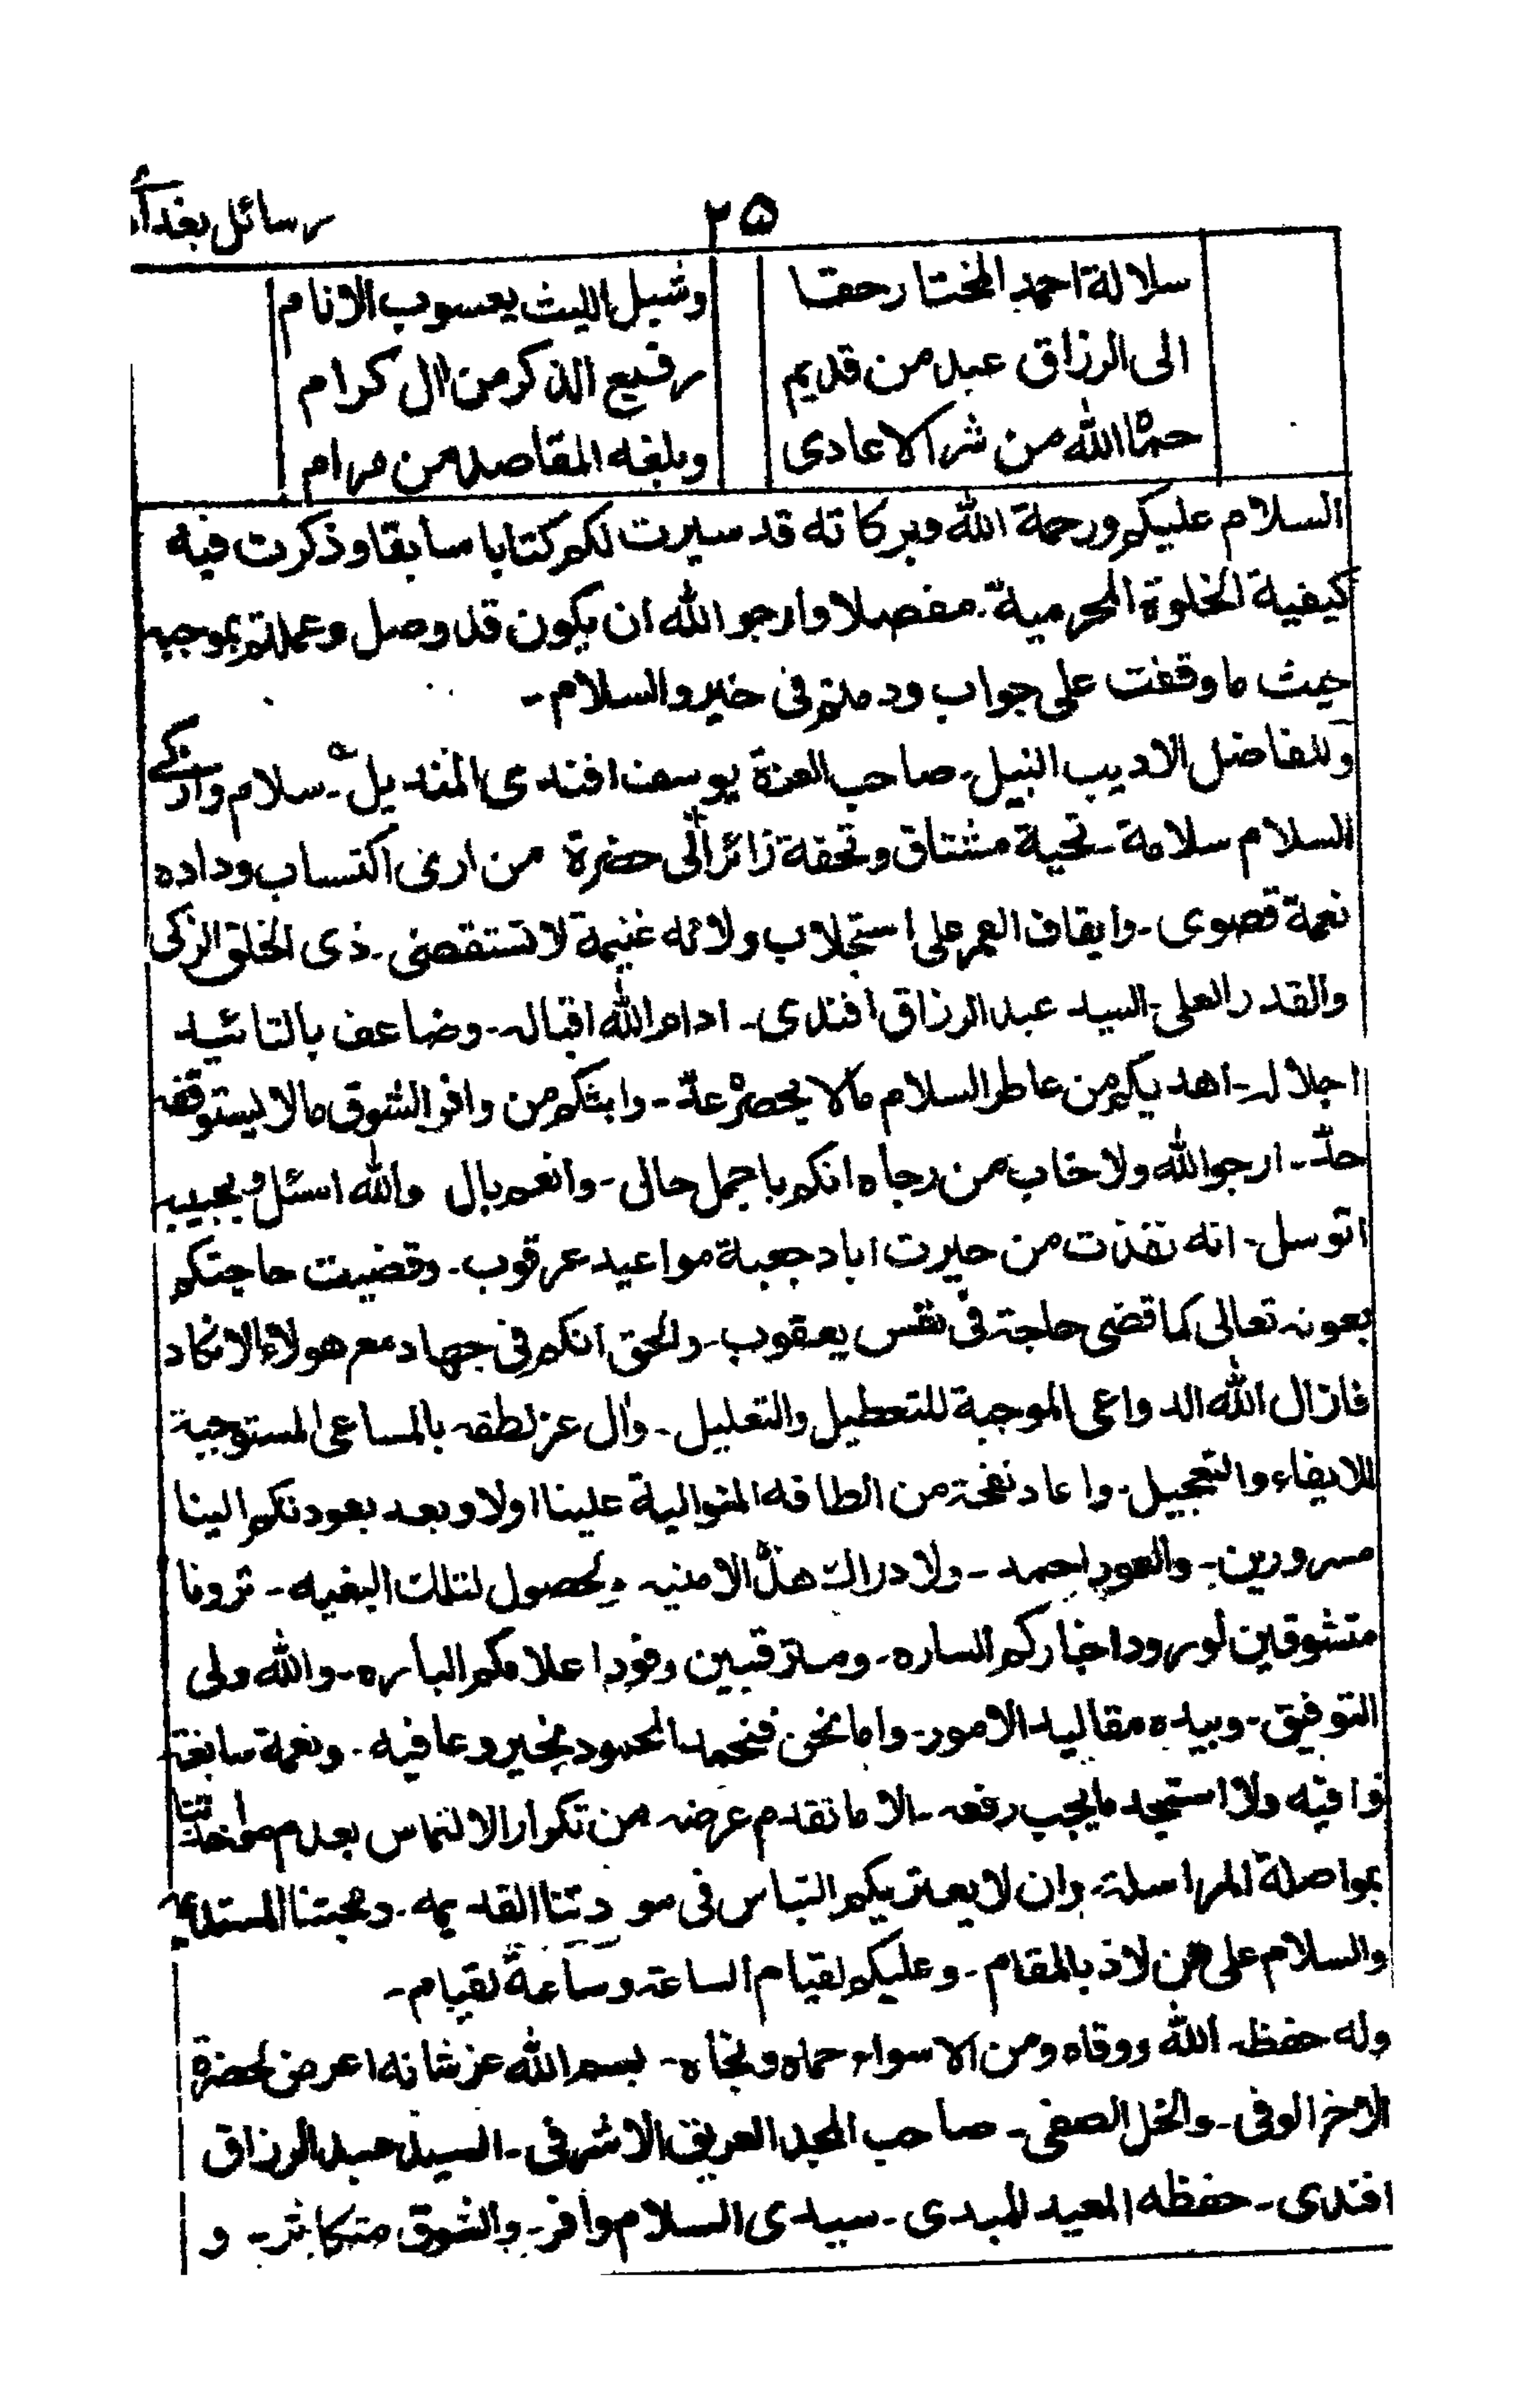 ۲۵
رسائل بغداد
سلالة احمد المختار حقا وشبل الليث يعسوب الانام
الى الرزاق عبد من قديم رفيع الذكر من ال كرام
حماه الله من شر الاعادى وبلغه المقاصد من مرام
السلام عليكم ورحمة الله وبركاته قد سيرت لكم كتابا سابقا وذكرت فيه
كيفية الخلوة المحرمية. مفصلا وارجو الله ان يكون قد وصل وعملتم بموجبه
حيث ما وقفت على جواب ودمتم فى خير والسلام-
وللفاضل الاديب النبيل- صاحب العزة يوسف افندى المنديل- سلام وازكى
السلام سلامة- تحية مشتاق وتحفة زائر الى حضرة من ارى اكتساب وداده
نعمة قصوى- وايقاف العمر على استجلاب ولائه غنيمة لا تستقصى- ذى الخلق الزكى
والقدر العلى- السيد عبد الرزاق افندى- ادام الله اقباله- وضاعف بالتائيد
اجلاله- اهديكم من عاطر السلام مالا يحصره عدّ- وابثكم من وافر الشوق مالا يستوقفه
حدّ- ارجو الله ولا خاب من رجاه انكم باجمل حالى- وانعم بال والله اسئل وبحبيبه
اتوسل- انه نفذت من حيرت اباد جعبة مواعيد عرقوب- وقضيت حاجتكم
بعونه تعالى كما قضى حاجة فى نفس يعقوب- والحق انكم فى جهاد مع هولاء الانكاد
فازال الله الدواعى الموجبة للتعطيل والتعليل- وال عز لطفه بالمساعى المستوجبة
للايفاء والتعجيل- واعاد نفحة من الطافه المتوالية علينا اولا وبعد بعودتكم الينا
مسرورين- والعود احمد- ولادراك هذه الامنيه- ولحصول لتلك البغيه- ترونا
متشوقين لورود اخباركم الساره- ومترقبين وفود اعلامكم الباره- والله ولى
التوفيق- وبيده مقاليد الامور- واما نحن فنحمد المحمود بخير وعافيه- ونعمة سابغة
وافيه ولا استجد ما يجب رفعه- الا ما تقدم عرضه من تكرار الالتماس بعدم مواخذتنا
بمواصلة المراسلة- وان لا يعتريكم التباس فى مودتنا القديمه- ومحبتنا المستديمه
والسلام على من لاذ بالمقام- وعليكم لقيام الساعة وساعة لقيام-
وله حفظه الله ووقاه ومن الاسواء حماه ونجاه- بسم الله عز شانه اعرض لحضرة
الاخ الوفى- والخل الصفى- صاحب المجد العريق الاشرفى- السيد عبد الرزاق
افندى- حفظه المعيد المبدى- سيدى السلام وافر- والشوق متكاثر- و